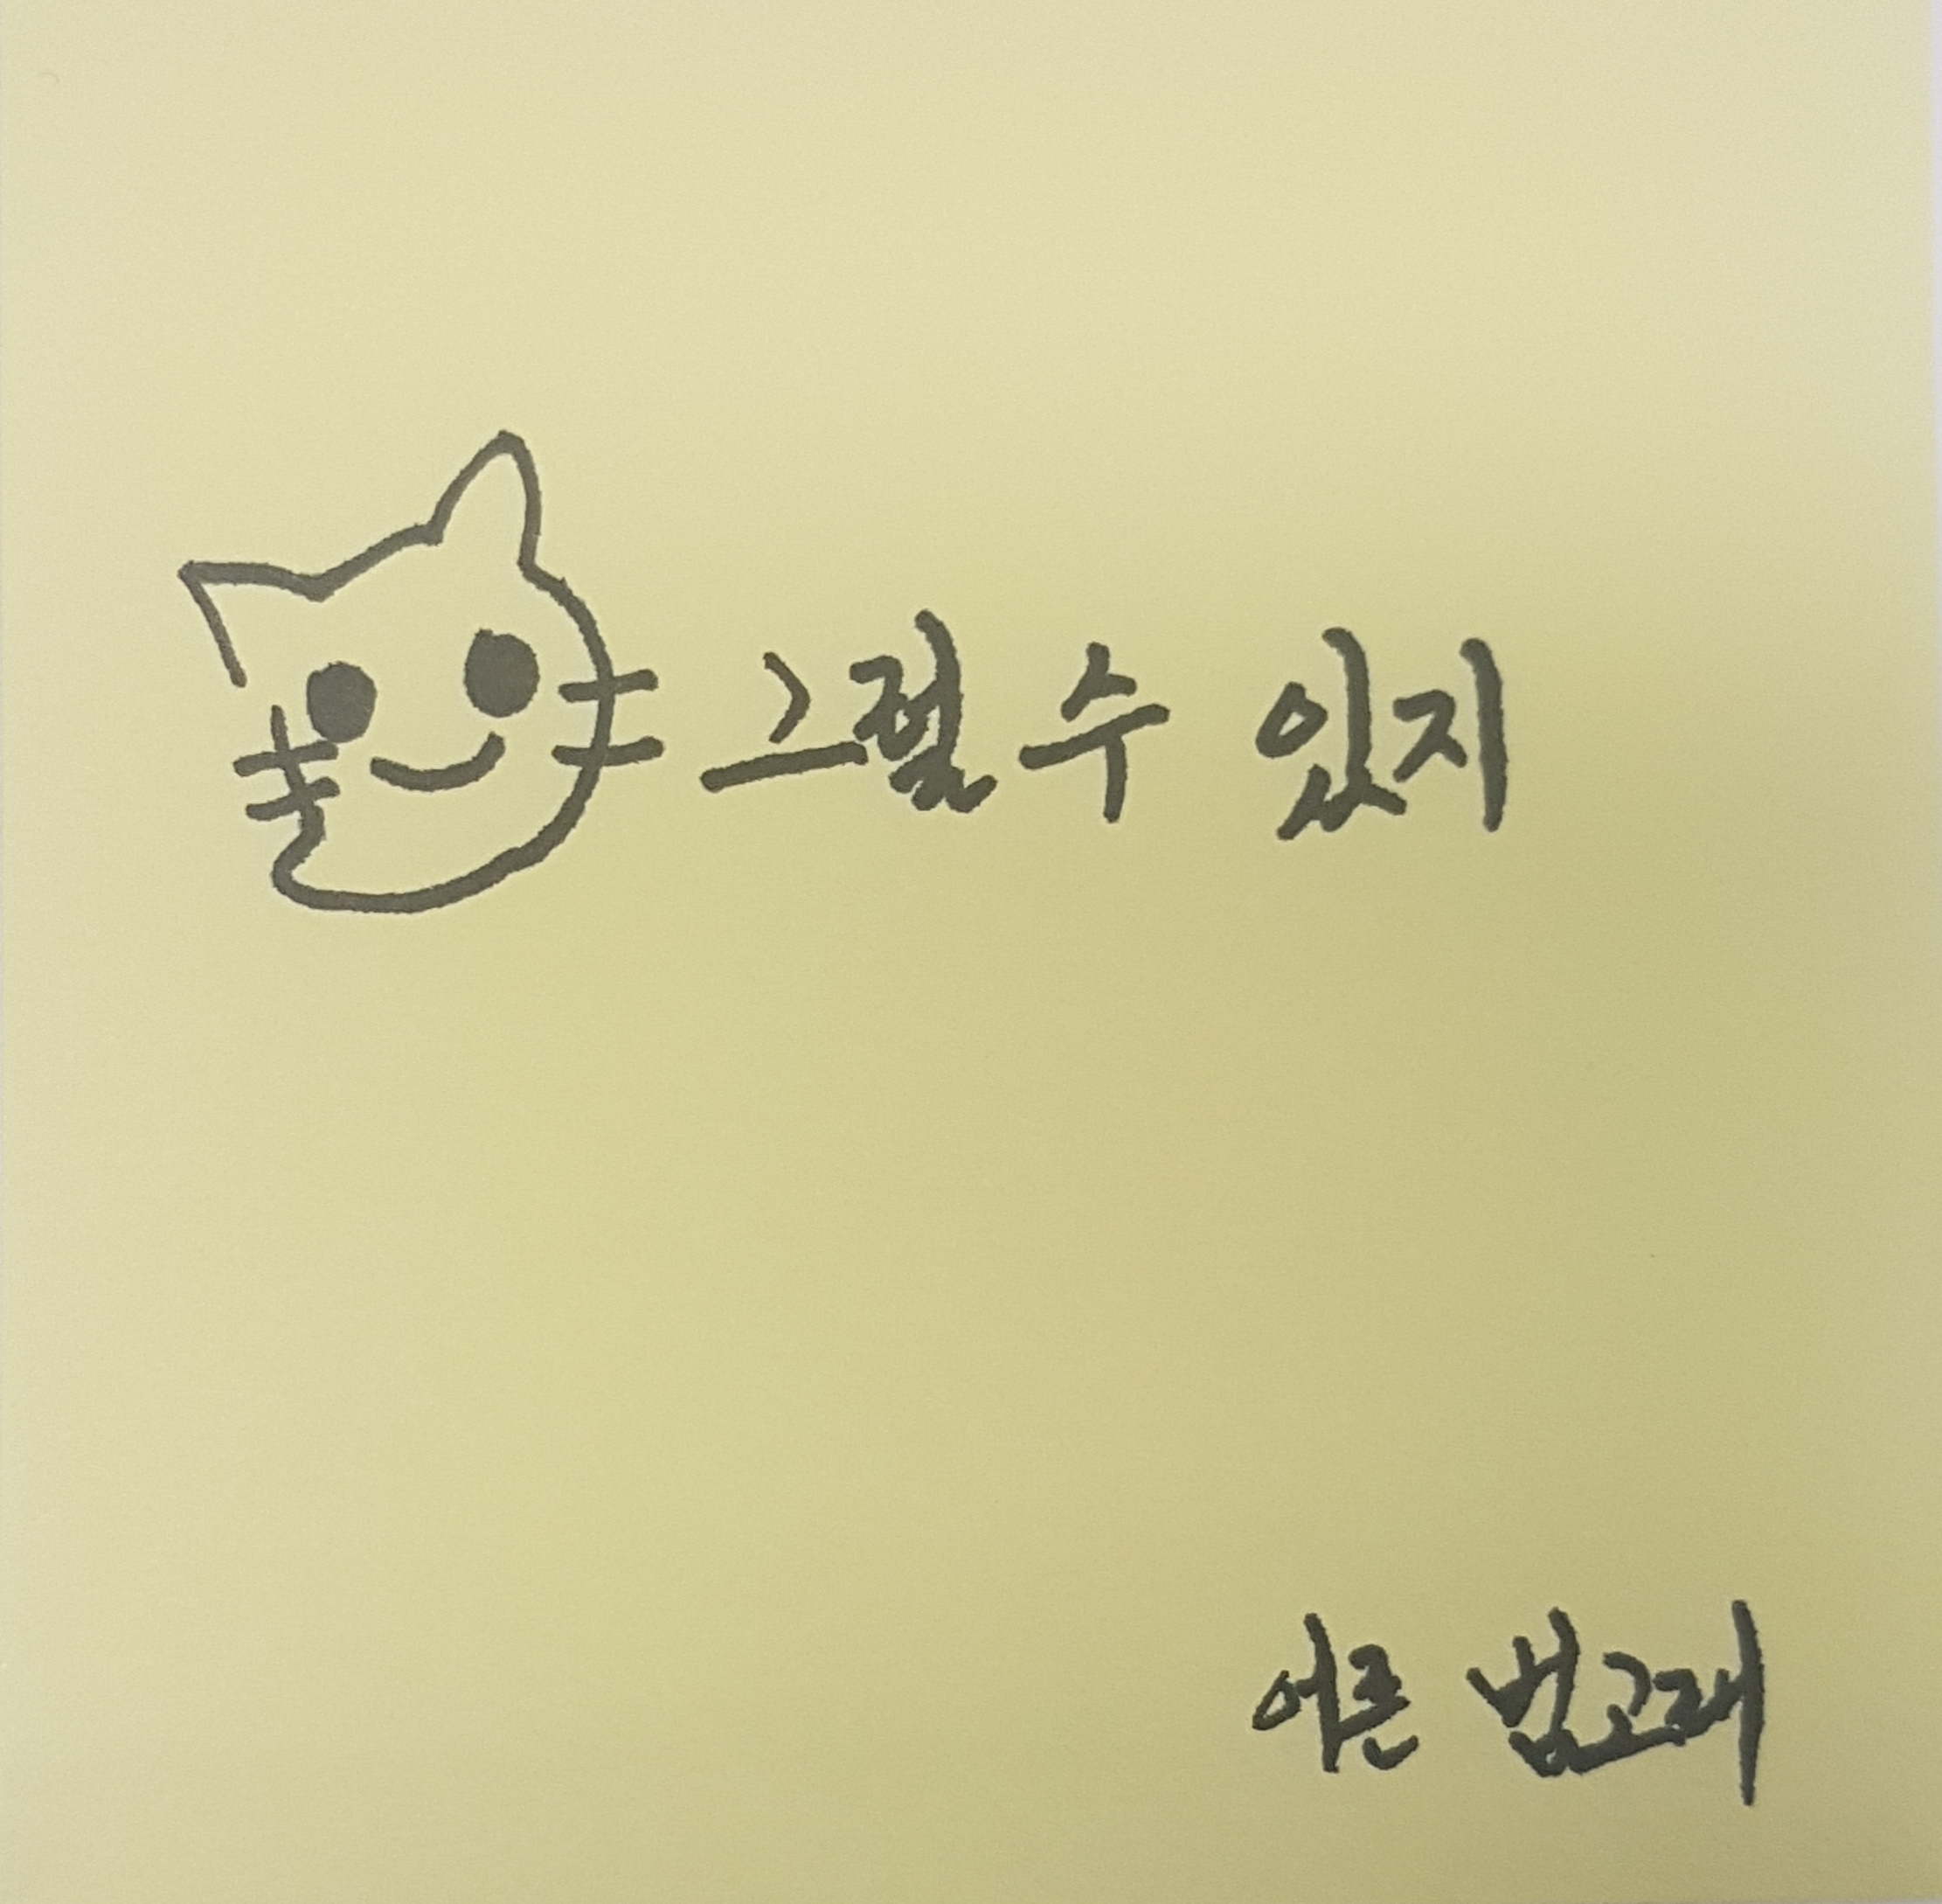 그럴 수 있지
어른 범고래